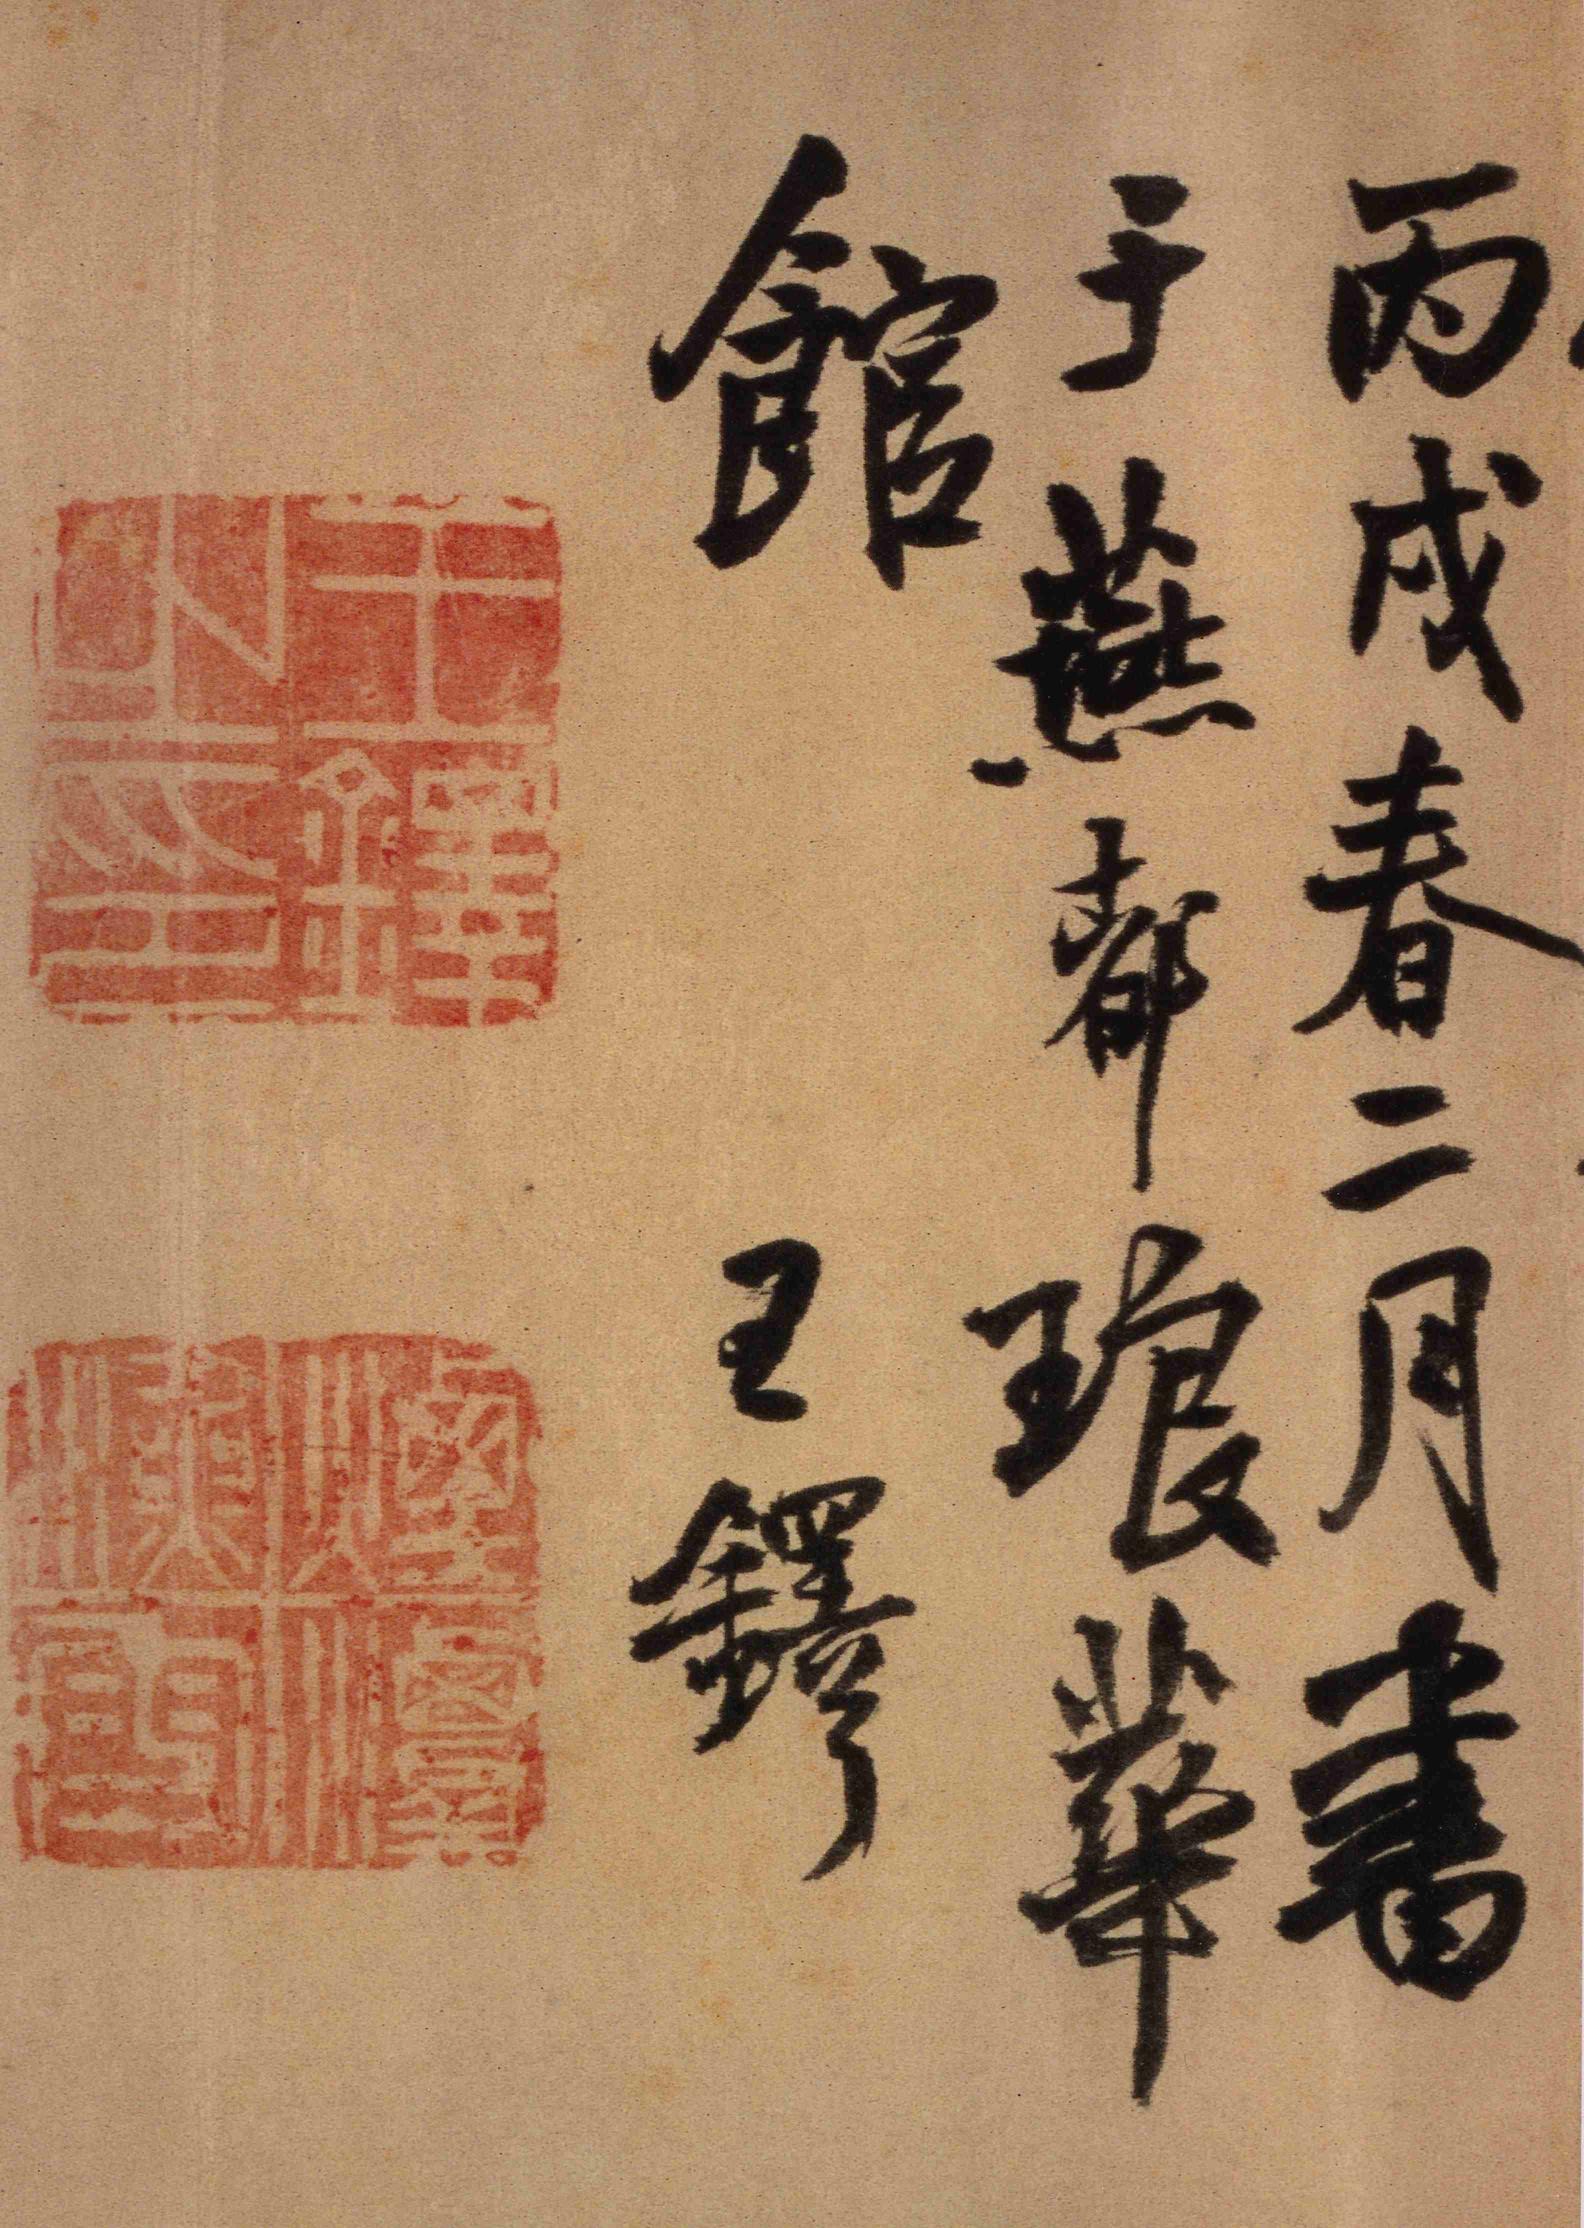 丙戌春二月書
于燕都琅華
館
王鐸
王鐸之印
煙潭漁叟